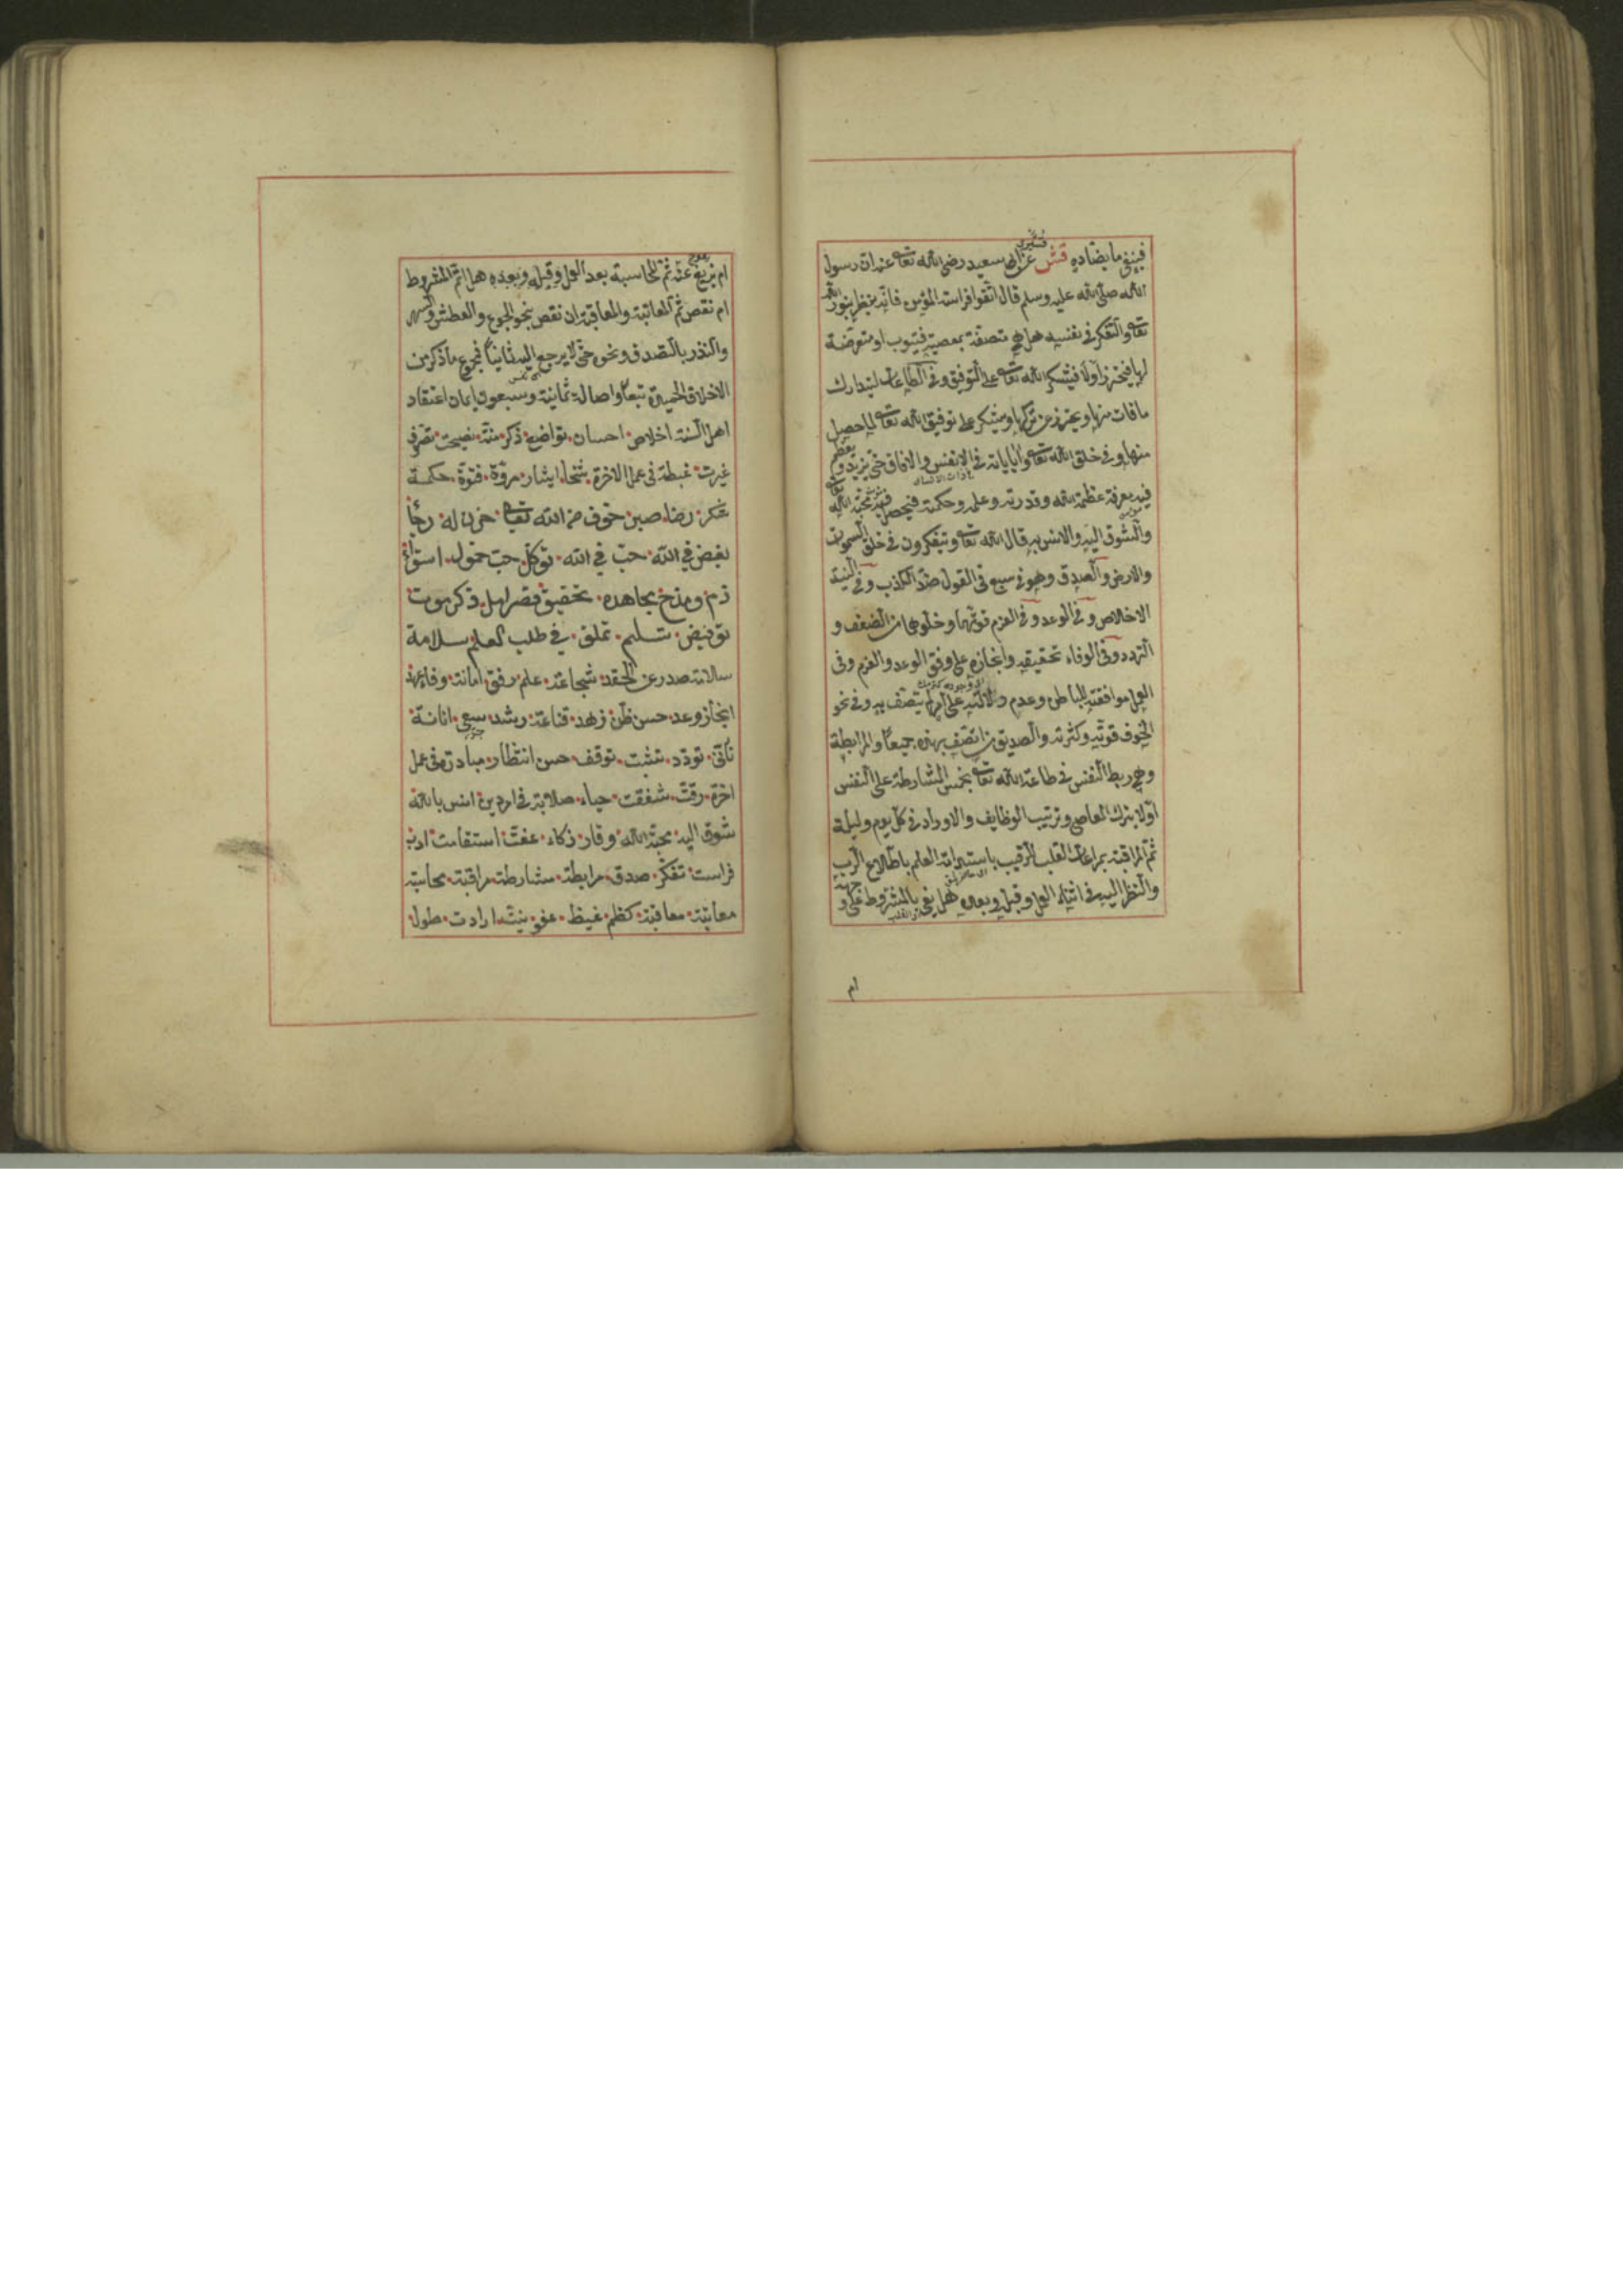 فينفي ما يضاده قش عن ابى سعيد رضى الله تعا عنه ان رسول
قشيرى
الله صلى الله عليه وسلم قال اتقوا فراسة المؤمن فانه ينظر بنور الله
تعا والتفكر فى نفسه هل هى متصفة بمعصية فيتوب او متعرضة
لها فيتحرز اولا فيشكر الله تعا على التوفيق وفى الطاعات ليتدارك
ما فات منها ويحترز عن تركها ويشكر على توفيق الله تعا لما حصل
منها وفى خلق الله تعا واياته فى الانفس والافاق حتى يزيد ويعظم
فيه معرفة عظمة الله وقدرته وعلمه وحكمته فيحصل فيه محبة الله تعا
والشوق اليه والانس به قال الله تعا ويتفكرون فى خلق السموات
والارض والصدق وهو فى سبع فى القول ضد الكذب وفى النية
الاخلاص وفى الوعد وفى العزم قوتهما وخلوهما من الضعف و
التردد وفى الوفاء تحقيقه وانجازه على وفق الوعد والعزم وفى
العمل موافقته للباطن وعدم دلالته على امر لم يتصف به وفى نحو
الخوف قوته وكثرته والصديق من اتصف بهذه جميعا والمرابطة
وهى ربط النفس فى طاعة الله تعا بخمس المشارطة على النفس
اولا بترك المعاصى وترتيب الوظايف والاوراد فى كل يوم وليلة
ثم المراقبة بمراعات القلب للرقيب باستدامة العلم باطلاع الرب
والنظر اليه فى اثناء العمل وقبله وبعده هل يفى بالمشروط على و
ام
ام يزيغ عنه ثم المحاسبة بعد العمل وقبله وبعده هل اتم المشروط
ام نقص ثم المعاتبة والمعاقبة ان نقص بنحو الجوع والعطش والسهر
والنذر بالتصدق ونحوه حتى لا يرجع اليه ثانيا فمجموع ما ذكر من
الاخلاق الحميدة تبعا واصالة ثمانية وسبعون ايمان اعتقاد
اهل السنة اخلاص احسان تواضع ذكر منة نصيحت تصرف
غيرت غبطة فى عمل الاخرة سخا ايثار مروة فتوة حكمة
شكر رضا صبر خوف من الله تعا حزن له رجأ
بغض في الله حبّ في الله توكل حب خمول استوأ
ذم ومدح مجاهده تحقيق قصر امل ذكر موت
تفويض تسليم تملق في طلب العلم سلامة
سلامة صدر عن الحقد شجاعة حلم رفق امانة وفاء عهد
انجاز وعد حسن ظن زهد قناعة رشد سعى انائة
تأنى تودد تثبت توقف حسن انتظار مبادرة فى عمل
اخرة رقت شفقت حياء صلابة فى امر دين انس بالله
شوق اليه محبة الله وقار ذكاء عفت استقامت ادب
فراست تفكر صدق مرابطة مشارطة مراقبة محاسبة
معاتبة معاقبة كظم غيظ عفو نيت ارادت طول